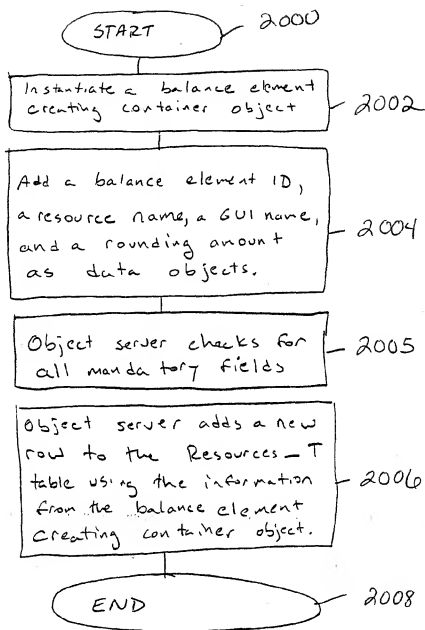 START
2000
Instantiate a balance element
creating container object
2002
Add a balance element ID,
a resource name, a GUI name,
and a rounding amount
as data objects.
2004
Object server checks for
all mandatory fields
2005
Object server adds a new
row to the Resources_T
table using the information
from the balance element
creating container object.
2006
END
2008